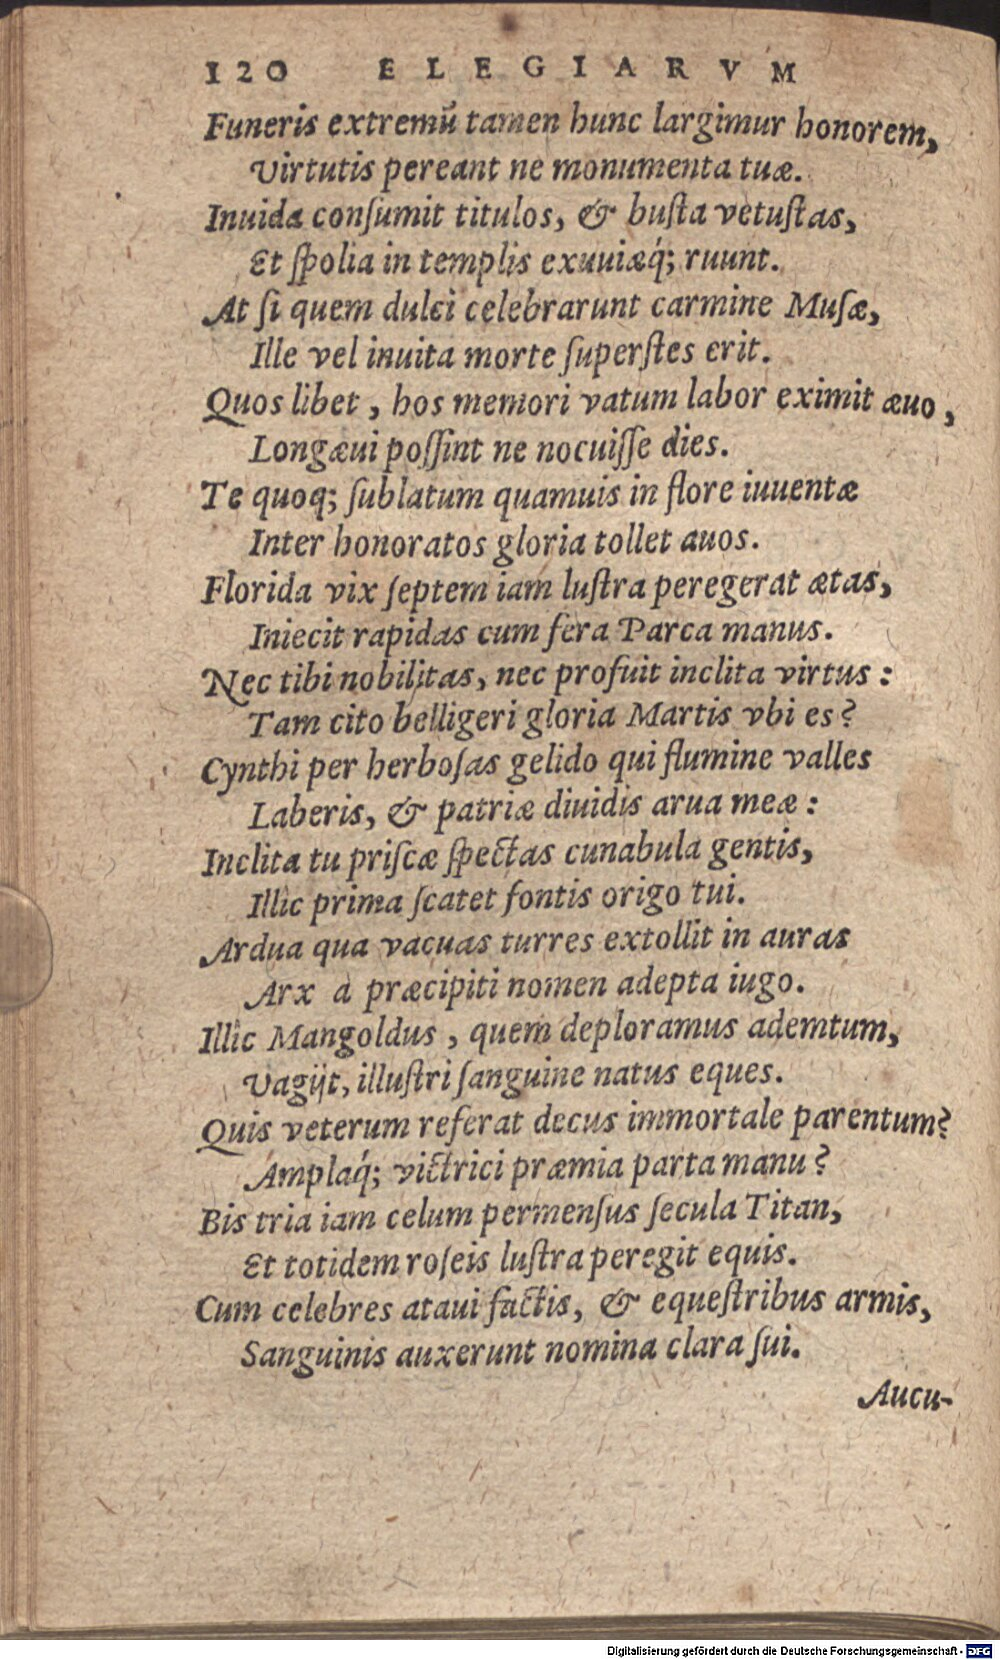 120 ELEGIARVM
Funeris extremũ tamen hunc largimur honorem,
Virtutis pereant ne monumenta tuæ.
Inuida conſumit titulos, & buſta vetuſtas,
Et ſpolia in templis exuuiæq́; ruunt.
At ſi quem dulci celebrarunt carmine Muſæ,
Ille vel inuita morte ſuperſtes erit.
Quos libet, hos memori vatum labor eximit æuo,
Longæui poſſint ne nocuiſſe dies.
Te quoq; ſublatum quamuis in flore iuuentæ
Inter honoratos gloria tollet auos.
Florida vix ſeptem iam luſtra peregerat ætas,
Iniecit rapidas cum fera Parca manus.
Nec tibi nobilitas, nec profuit inclita virtus:
Tam cito belligeri gloria Martis vbi es?
Cynthi per herboſas gelido qui flumine valles
Laberis, & patriæ diuidis arua meæ:
Inclita tu priſcæ ſpectas cunabula gentis,
Illic prima ſcatet fontis origo tui.
Ardua qua vacuas turres extollit in auras
Arx à præcipiti nomen adepta iugo.
Illic Mangoldus, quem deploramus ademtum,
Vagijt, illuſtri ſanguine natus eques.
Quis veterum referat decus immortale parentum?
Amplaq́; victrici præmia parta manu?
Bis tria iam celum permenſus ſecula Titan,
Et totidem roſeis luſtra peregit equis.
Cum celebres ataui factis, & equeſtribus armis,
Sanguinis auxerunt nomina clara ſui.
Aucu-
Digitalisierung gefördert durch die Deutsche Forschungsgemeinschaft - DFG